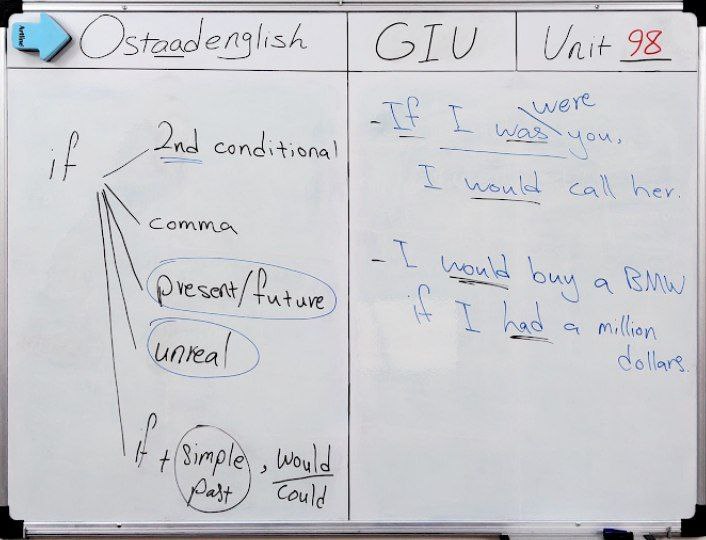 Artline
Ostaadenglish
GIU
Unit 98
if
2nd conditional
comma
present/future
unreal
if + simple past, would
could
were
- If I was you,
I would call her.
- I would buy a BMW
if I had a million
dollars.